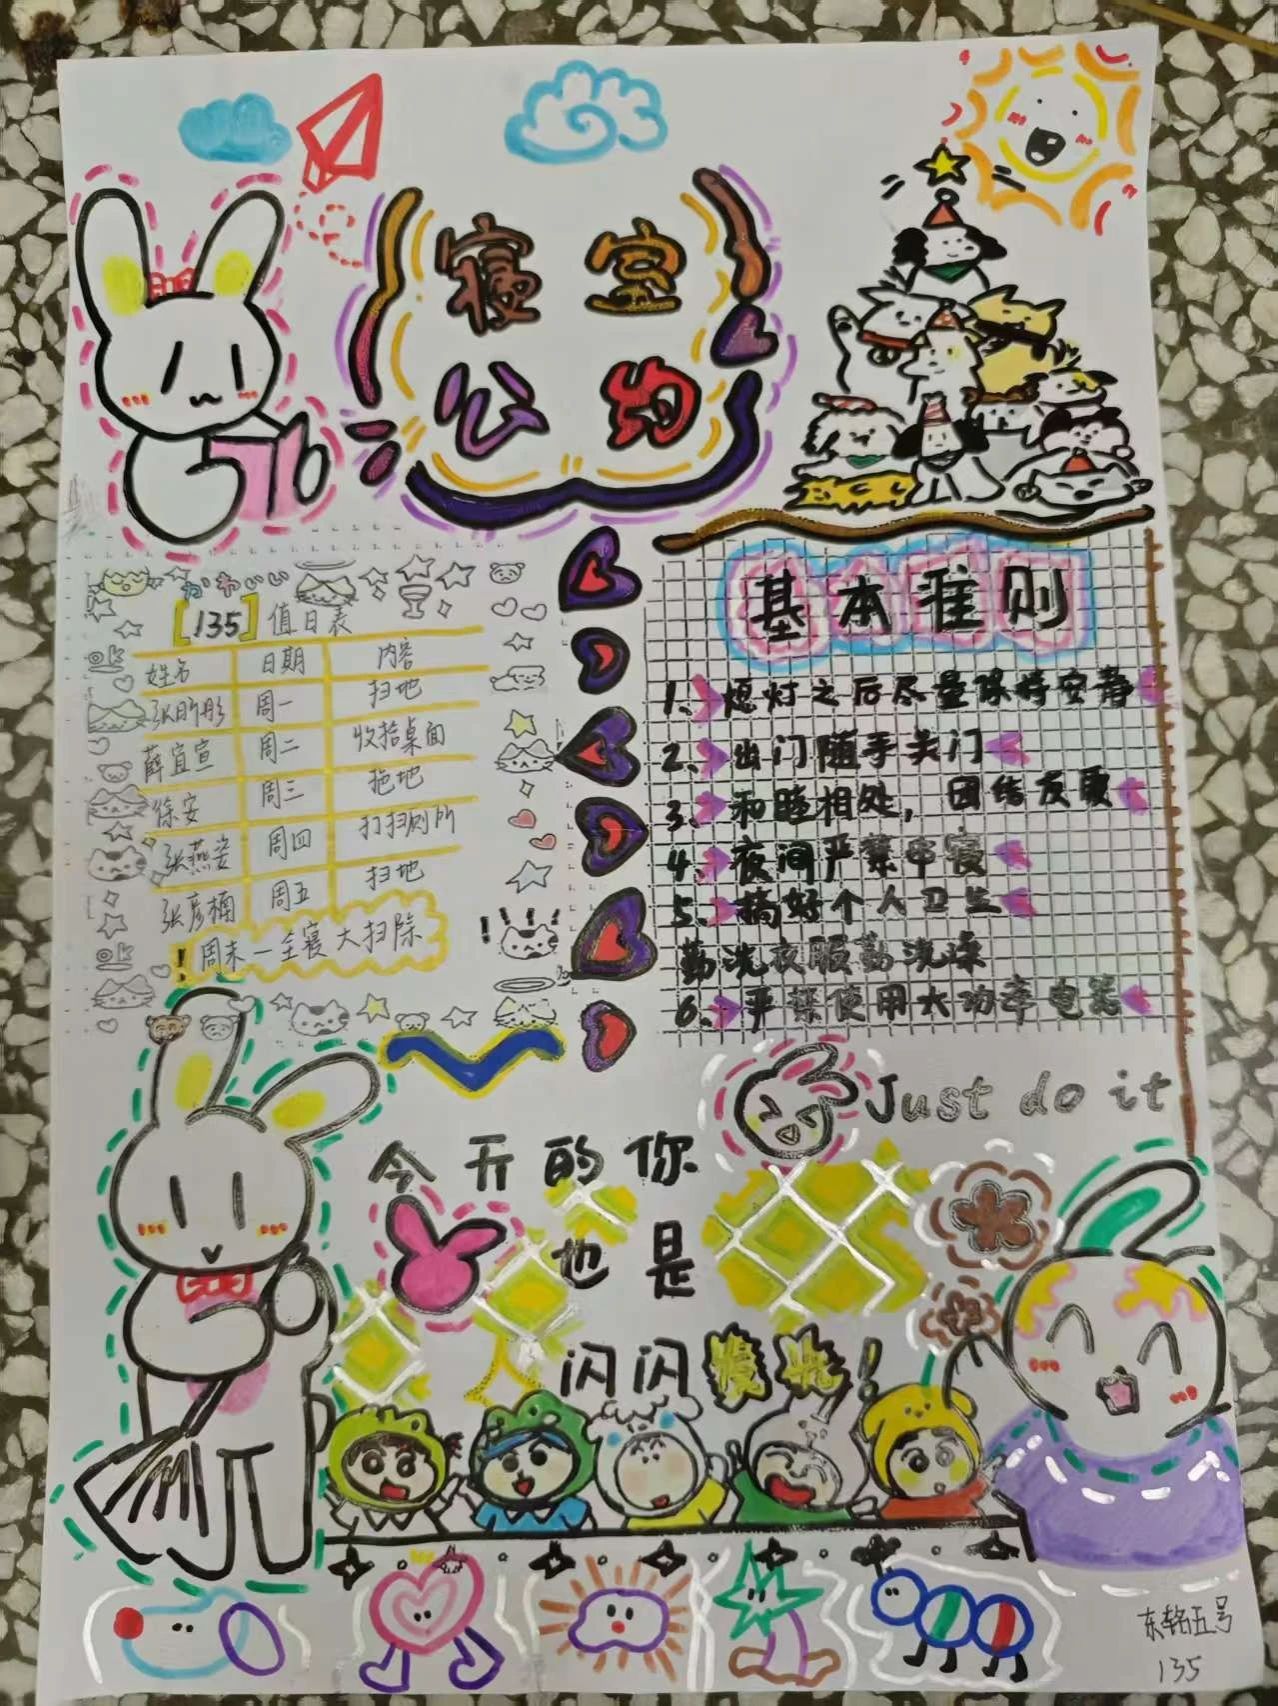 寝室
公约
かわいい
[135] 值日表
姓名 日期 内容
张昕彤 周一 扫地
薛宜宣 周二 收拾桌面
徐安 周三 拖地
张燕姿 周四 打扫厕所
张彦楠 周五 扫地
！周末一全寝大扫除
OK
OK
基本准则
1、熄灯之后尽量保持安静
2、出门随手关门
3、和睦相处，团结友爱
4、夜间严禁串寝
5、搞好个人卫生
勤洗衣服勤洗澡
6、严禁使用大功率电器
Just do it
今天的你
也是
闪闪
！
东轺五号
135